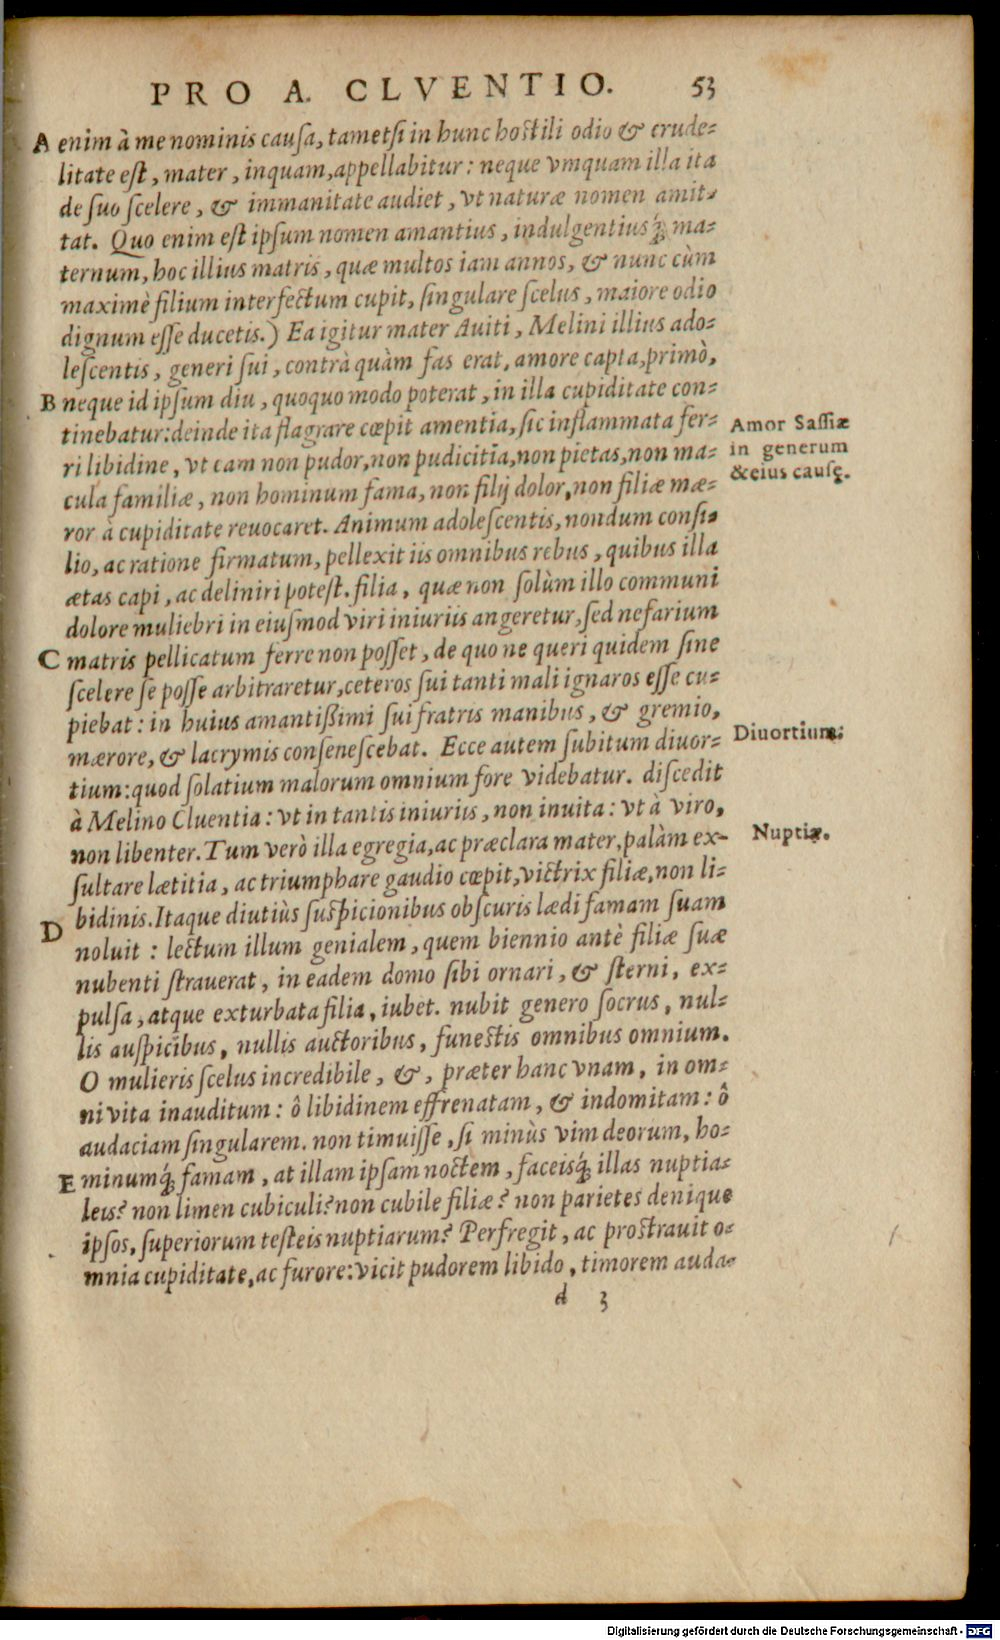 PRO A. CLVENTIO. 53
A enim à me nominis cauſa, tametſi in hunc hoſtili odio & crude-
litate eſt, mater, inquam, appellabitur: neque vmquam illa ita
de ſuo ſcelere, & immanitate audiet, vt naturæ nomen amit-
tat. Quo enim eſt ipſum nomen amantius, indulgentiusq́; ma-
ternum, hoc illius matris, quæ multos iam annos, & nunc cùm
maximè filium interfectum cupit, ſingulare ſcelus, maiore odio
dignum eſſe ducetis.) Ea igitur mater Auiti, Melini illius ado-
leſcentis, generi ſui, contrà quàm fas erat, amore capta, primò,
B neque id ipſum diu, quoquo modo poterat, in illa cupiditate con-
tinebatur: deinde ita flagrare cœpit amentia, ſic inflammata fer-
ri libidine, vt eam non pudor, non pudicitia, non pietas, non ma-
cula familiæ, non hominum fama, non filij dolor, non filiæ mæ-
ror à cupiditate reuocaret. Animum adoleſcentis, nondum conſi-
lio, ac ratione firmatum, pellexit iis omnibus rebus, quibus illa
ætas capi, ac deliniri poteſt. filia, quæ non ſolùm illo communi
dolore muliebri in eiuſmod viri iniuriis angeretur, ſed nefarium
C matris pellicatum ferre non poſſet, de quo ne queri quidem ſine
ſcelere ſe poſſe arbitraretur, ceteros ſui tanti mali ignaros eſſe cu-
piebat: in huius amantißimi ſui fratris manibus, & gremio,
mærore, & lacrymis conſeneſcebat. Ecce autem ſubitum diuor-
tium: quod ſolatium malorum omnium fore videbatur. diſcedit
à Melino Cluentia: vt in tantis iniuriis, non inuita: vt à viro,
non libenter. Tum verò illa egregia, ac præclara mater, palàm ex-
ſultare lætitia, ac triumphare gaudio cœpit, victrix filiæ, non li-
D bidinis. Itaque diutiùs ſuſpicionibus obſcuris lædi famam ſuam
noluit: lectum illum genialem, quem biennio antè filiæ ſuæ
nubenti ſtrauerat, in eadem domo ſibi ornari, & ſterni, ex-
pulſa, atque exturbata filia, iubet. nubit genero ſocrus, nul-
lis auſpicibus, nullis auctoribus, funeſtis omnibus omnium.
O mulieris ſcelus incredibile, &, præter hanc vnam, in om-
ni vita inauditum: ô libidinem effrenatam, & indomitam: ô
audaciam ſingularem. non timuiſſe, ſi minùs vim deorum, ho-
E minumq́; famam, at illam ipſam noctem, faceisq́; illas nuptia-
leis? non limen cubiculi? non cubile filiæ? non parietes denique
ipſos, ſuperiorum teſteis nuptiarum? Perfregit, ac proſtrauit o-
mnia cupiditate, ac furore: vicit pudorem libido, timorem auda-
d 3
Amor Saſſiæ
in generum
& eius cauſę.
Diuortium.
Nuptiæ.
Digitalisierung gefördert durch die Deutsche Forschungsgemeinschaft - DFG